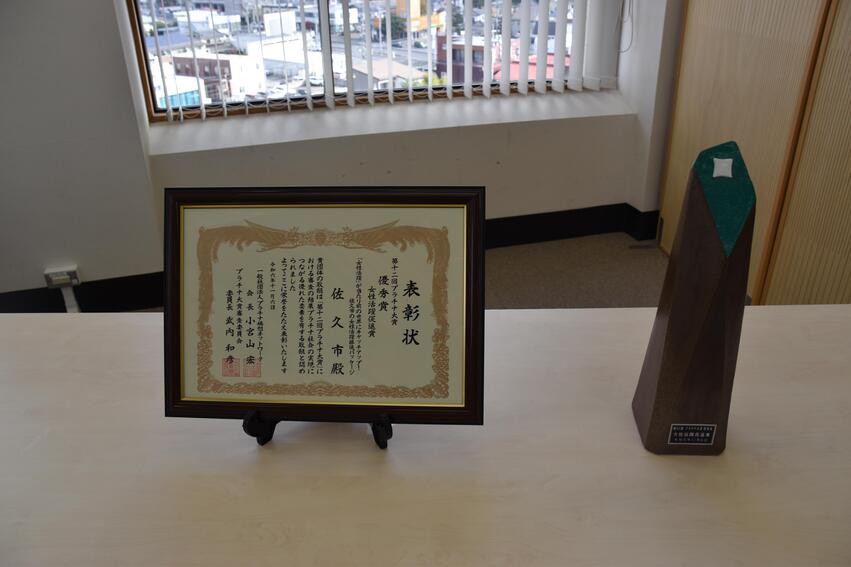 表彰状
第十二回プラチナ大賞
優秀賞
女性活躍促進賞
「女性活躍」が当たり前の世界にキャッチアップ!
佐久市の女性活躍推進パッケージ
佐久市殿
貴団体の取組は「第十二回プラチナ大賞」に
おける審査の結果プラチナ社会の実現に
つながる優れた要素を有する取組と認め
られました
よってここに栄誉をたたえ表彰いたします
令和六年十一月六日
一般社団法人プラチナ構想ネットワーク
会長 小宮山 宏
プラチナ大賞審査委員会
委員長 武内 和彦
女性活躍促進賞